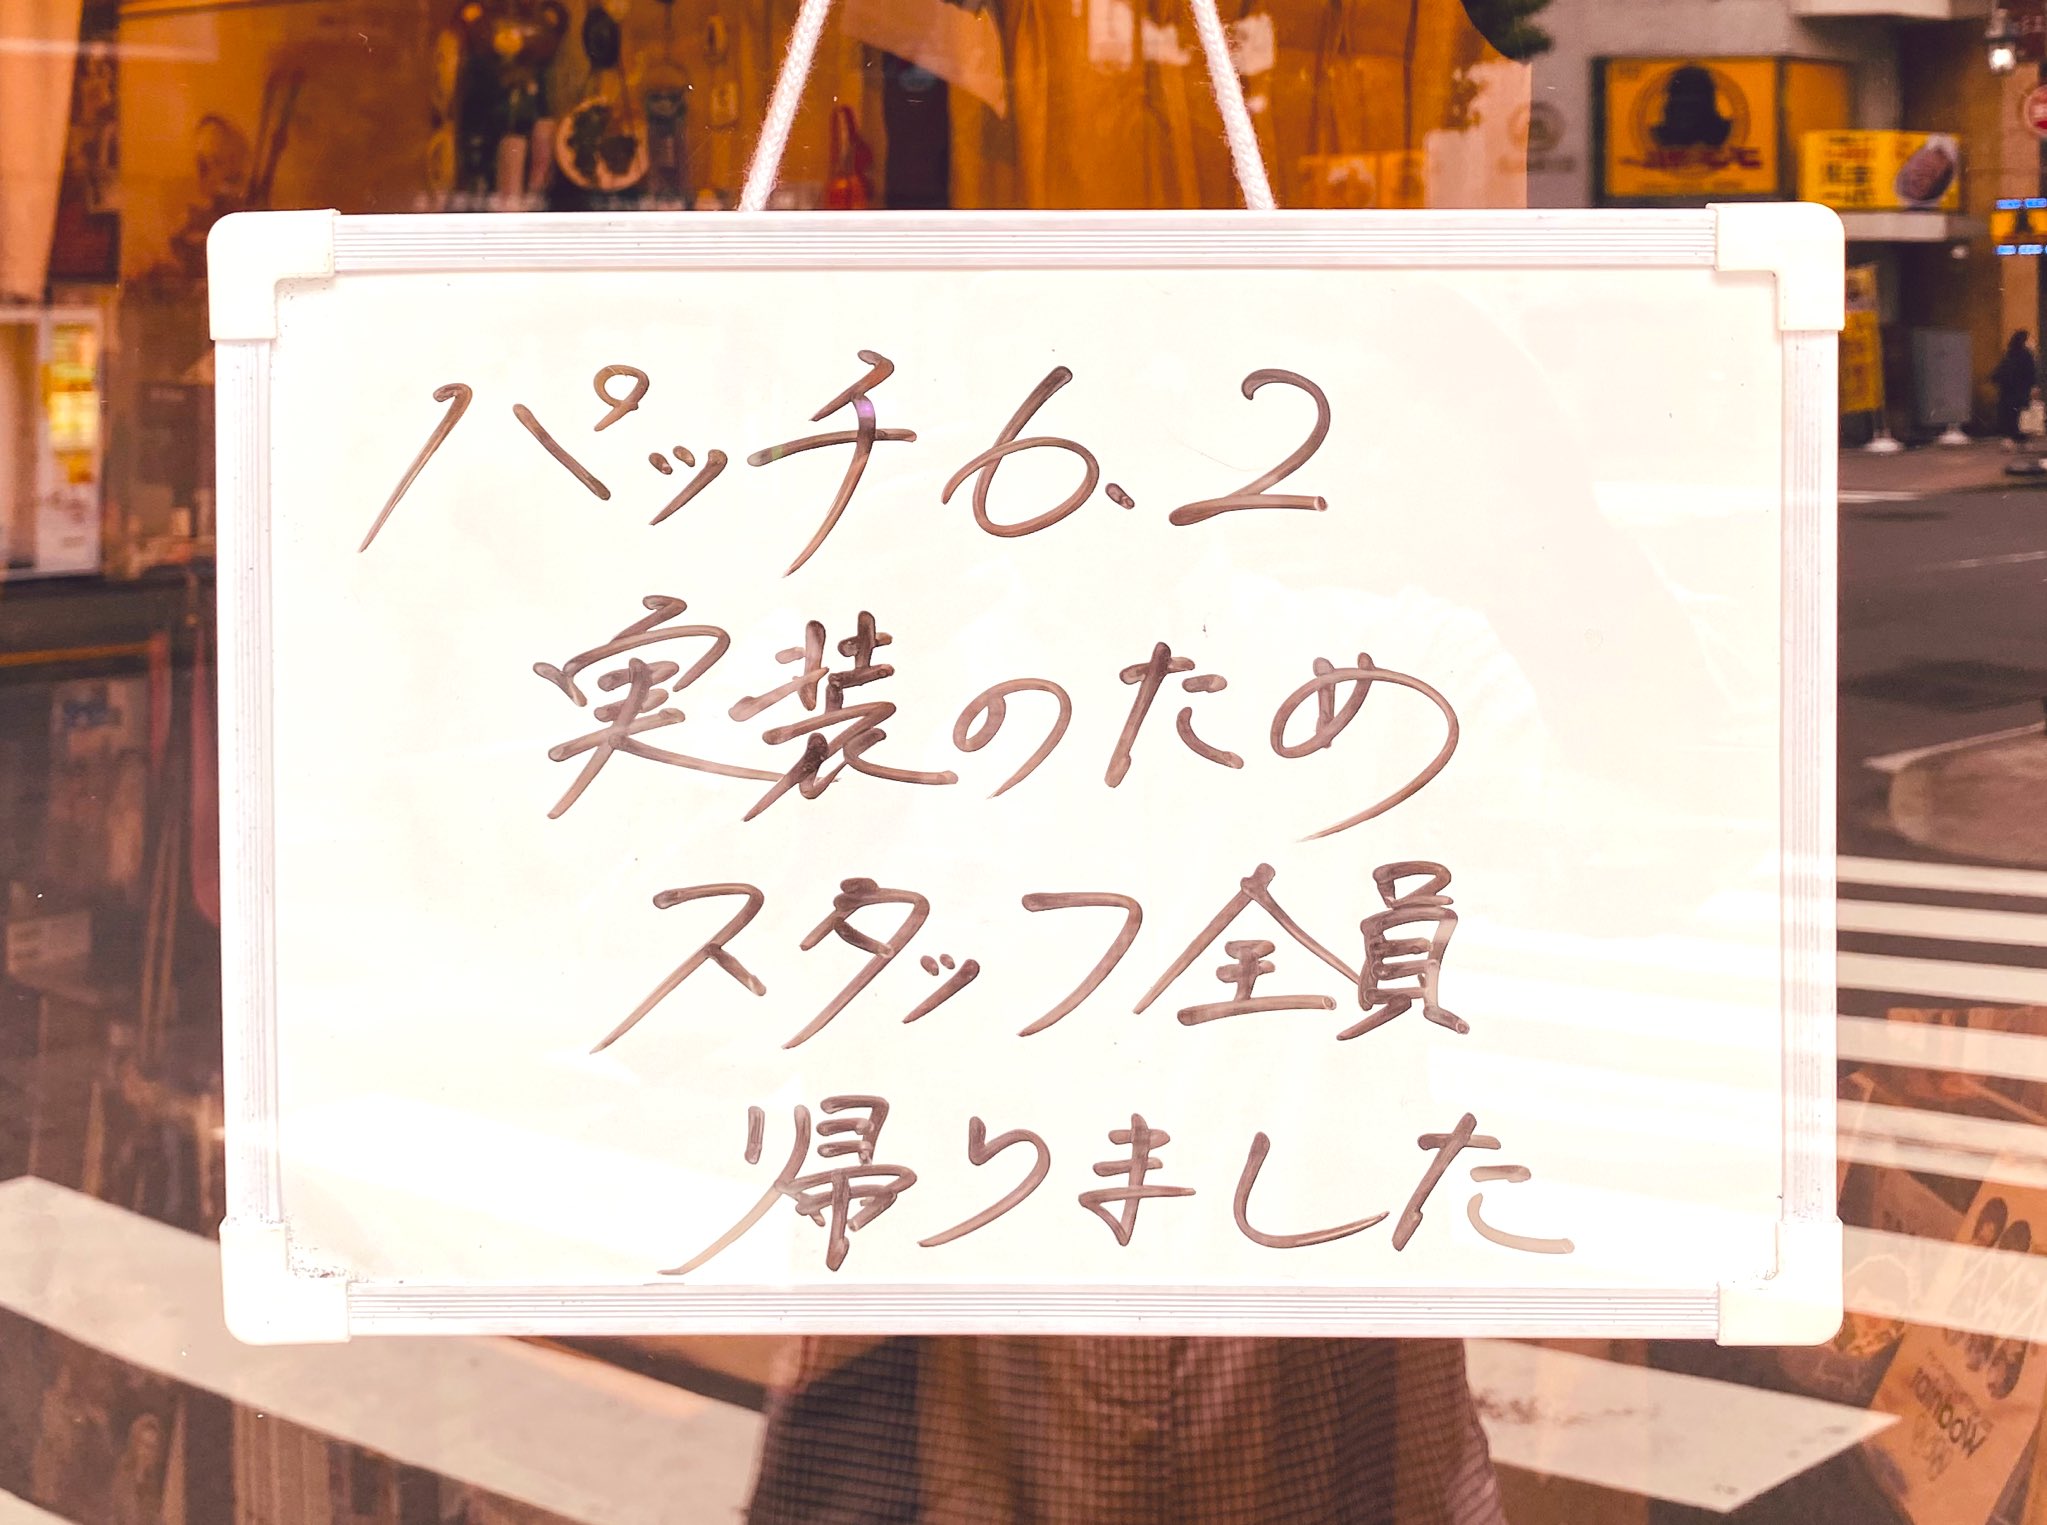 パッチ6.2
実装のため
スタッフ全員
帰りました
rainbow